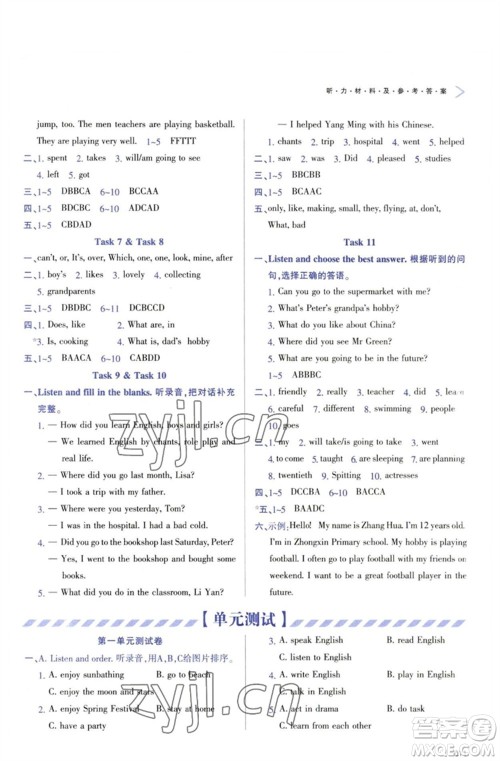 听·力·材·料·及·参·考·答·案
jump, too. The men teachers are playing basketball.
They are playing very well.  1~5  FFTTT
二、1. spent  2. takes  3. will/am going to see
4. left  5. got
三、1~5  DBBCA  6~10  BCCAA
四、1~5  BDCBC  6~10  ADCAD
五、1~5  CBDAD
Task 7 & Task 8
一、can't, or, It's, over, Which, one, one, look, mine, after
二、1. boy's  2. likes  3. lovely  4. collecting
5. grandparents
三、1~5  DBDBC  6~11  DCBCCD
四、1. Does, like  2. What are, in
3. Is, cooking  4. What is, dad's hobby
五、1~5  BAACA  6~10  CABDD
Task 9 & Task 10
一、Listen and fill in the blanks. 听录音,把对话补充
完整。
1. — How do you learn English, boys and girls?
— We learned English by chants, role play and
real life.
2. — Where did you go last month, Lisa?
— I took a trip with my father.
3. — Where were you yesterday, Tom?
— I was in the hospital. I had a cold.
4. — Did you go to the bookshop last Saturday, Peter?
— Yes, I did. I went to the bookshop and bought
some books.
5. — What did you do in the classroom, Li Yan?
— I helped Yang Ming with his Chinese.
1. chants  2. trip  3. hospital  4. bookshop
5. helped
二、1. saw  2. was  3. Did  4. pleased  5. studied
三、1~5  BBCBB
四、1~5  BCAAC
五、only, like, making, they, stuffs, at, flying, or,
What, bad
Task 11
一、Listen and choose the best answer. 根据听到的问
句,选择正确的答语。
1. Can you go to the supermarket with me?
2. What's Peter's grandpa's hobby?
3. How do you like about China?
4. Where did you see Mr Green?
5. What are you going to be in the future?
1~5  ABBBC
二、1. friendly  2. really  3. different
6. careful  7. different  8. swimming  9. people
10. goes
三、1. my  2. will take/is going to take  3. are
4. to come  5. asking  6. must  7. playing
8. twentieth  9. Spitting  10. actresses
四、1~5  DCCBA  6~10  BACCA
五、1~5  BAADC
六、示例:Hello!  My name is Zhang Hua. I'm 12 years old.
I'm in Zhongxin Primary School. My hobby is playing
football. I often play football with my friends on
weekend. I want to be a great football player in the
future.
【单元测试】
第一单元测试卷
一、A. Listen and order. 听录音,用A,B,C给图片排序。
1. A. enjoy sunbathing  B. go to beach
C. enjoy the moon and stars
2. A. enjoy Spring Festival  B. play the drums
C. have a party
3. A. speak English  B. read English
C. listen to English
4. A. write English  B. play English games
C. talk in English
5. A. act in drama  B. do a role play
C. learn chants
zyjl.cn
zyjl.cn